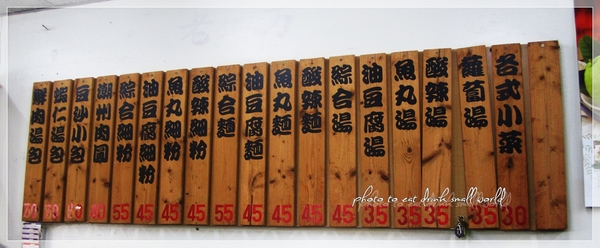 各式小菜 30
蘿蔔湯 35
酸辣湯 35
魚丸湯 35
油豆腐湯 35
綜合湯 45
酸辣麵 45
魚丸麵 45
油豆腐麵 45
綜合麵 55
酸辣細粉 45
魚丸細粉 45
油豆腐細粉 45
綜合細粉 55
潮州肉圓
豆沙小包
蝦仁湯包
鮮肉湯包
photo to eat drink small world